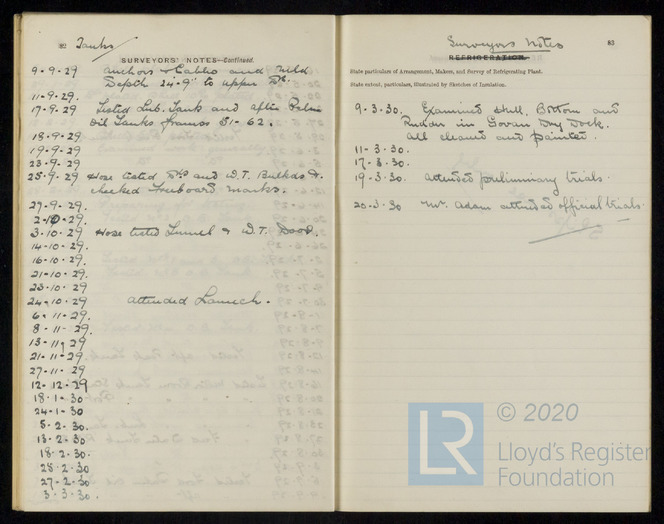 82 Tanks
SURVEYORS' NOTES—Continued.
9-9-29 Anchors & Cables and Mild
Depth 24-9" to upper Dk.
11-9-29.
17-9-29 Tested Lub. Tank and after Palm
Oil Tanks frames 51-62.
18-9-29
19-9-29
23-9-29
25-9-29 Hose tested and W.T. Bulkds &
checked Freeboard marks.
27-9-29.
2-10-29.
3-10-29 Hose tested Tunnel & W.T. Door.
14-10-29.
16-10-29
21-10-29
23-10-29
24-10-29 Attended Launch.
6-11-29.
8-11-29.
13-11-29
21-11-29.
27-11-29
12-12-29
18-1-30
24-1-30
5-2-30.
13-2-30
18-2-30.
25-2-30
27-2-30
3-3-30.
Surveyors Notes 83
REFRIGERATION.
State particulars of Arrangement, Makers, and Survey of Refrigerating Plant.
State extent, particulars, illustrated by Sketches of Insulation.
9-3-30. Examined Hull, Bottom and
Rudder in Govan Dry Dock.
All cleaned and painted.
11-3-30.
17-3-30.
19-3-30 Attended preliminary trials.
20-3-30 Mr. Adam attended official trials.
© 2020
LR
Lloyd's Register
Foundation